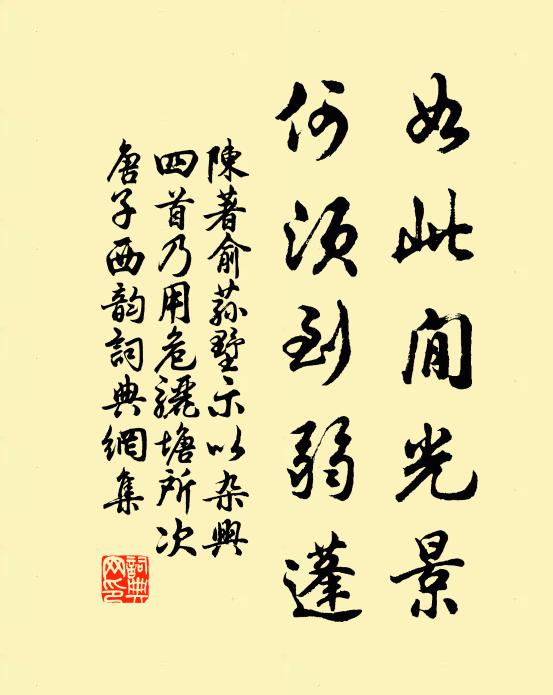 如此閒光景
何須到弱蓬
陳著俞荪墅示以杂興
四首乃用危驪塘所次
唐子西韵詞典網集
詞典网印